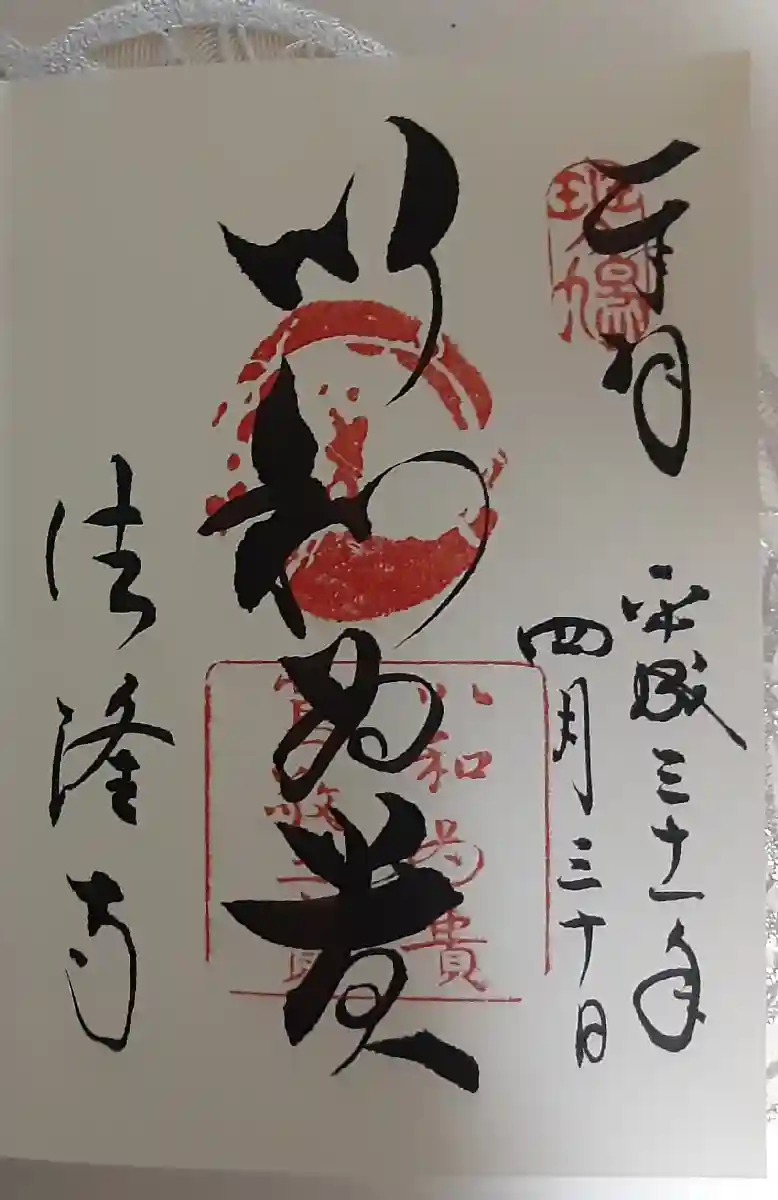 奉拝
斑鳩
平成三十一年
四月三十日
以和為貴
以和為貴
法隆寺